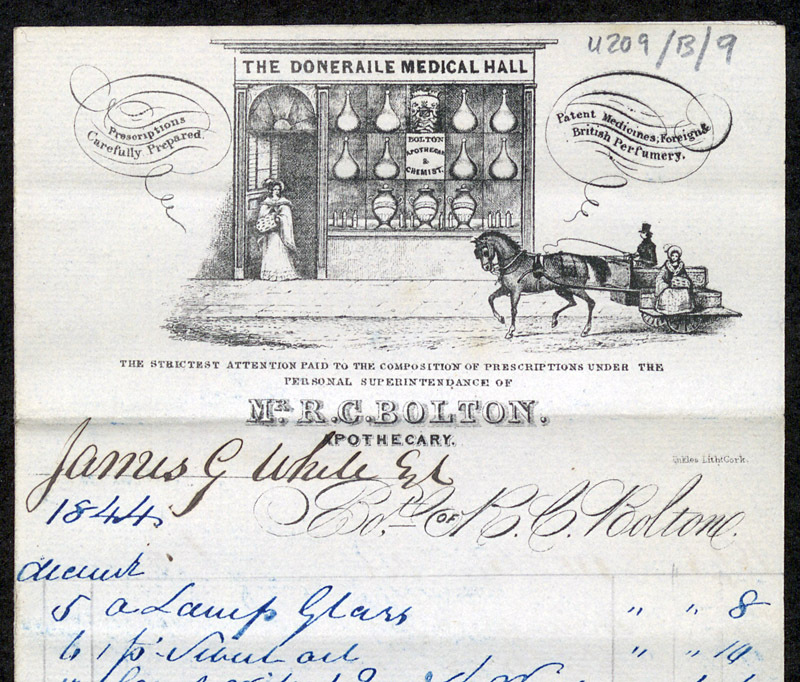 U209/B/9
THE DONERAILE MEDICAL HALL
Prescriptions
Carefully Prepared.
Patent Medicines, Foreign &
British Perfumery.
BOLTON
APOTHECARY
&
CHEMIST.
THE STRICTEST ATTENTION PAID TO THE COMPOSITION OF PRESCRIPTIONS UNDER THE
PERSONAL SUPERINTENDANCE OF
MR. R.C.BOLTON.
APOTHECARY.
Lith: Cork.
James G White Esq
1844
Bot. OF R. C. Bolton.
5 a Lamp Glass " " 8
6 1 " " 10